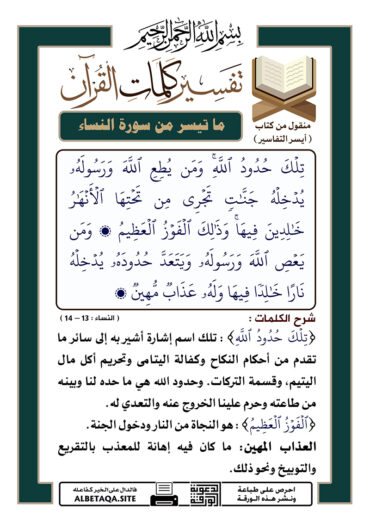 بِسْمِ اللَّهِ الرَّحْمَٰنِ الرَّحِيمِ
تفسير كلمات القرآن
ما تيسر من سورة النساء
منقول من كتاب
( أيسر التفاسير )
تِلْكَ حُدُودُ ٱللَّهِۚ وَمَن يُطِعِ ٱللَّهَ وَرَسُولَهُۥ
يُدْخِلْهُ جَنَّٰتٍ تَجْرِى مِن تَحْتِهَا ٱلْأَنْهَٰرُ
خَٰلِدِينَ فِيهَاۚ وَذَٰلِكَ ٱلْفَوْزُ ٱلْعَظِيمُ ۞ وَمَن
يَعْصِ ٱللَّهَ وَرَسُولَهُۥ وَيَتَعَدَّ حُدُودَهُۥ يُدْخِلْهُ
نَارًا خَٰلِدًا فِيهَا وَلَهُۥ عَذَابٌ مُّهِينٌ ۞
شرح الكلمات : ( النساء : 13 – 14 )
﴿تِلْكَ حُدُودُ ٱللَّهِ﴾ : تلك اسم إشارة أشير به إلى سائر ما
تقدم من أحكام النكاح وكفالة اليتامى وتحريم أكل مال
اليتيم، وقسمة التركات. وحدود الله هي ما حده لنا وبينه
من طاعته وحرم علينا الخروج عنه والتعدي له .
﴿ٱلْفَوْزُ ٱلْعَظِيمُ﴾ : هو النجاة من النار ودخول الجنة .
العذاب المهين: ما كان فيه إهانة للمعذب بالتقريع
والتوبيخ ونحو ذلك.
احرص على طباعة
ونشر هذه الورقة
الدعوية
الورقة
فالدال على الخير كفاعله
ALBETAQA.SITE